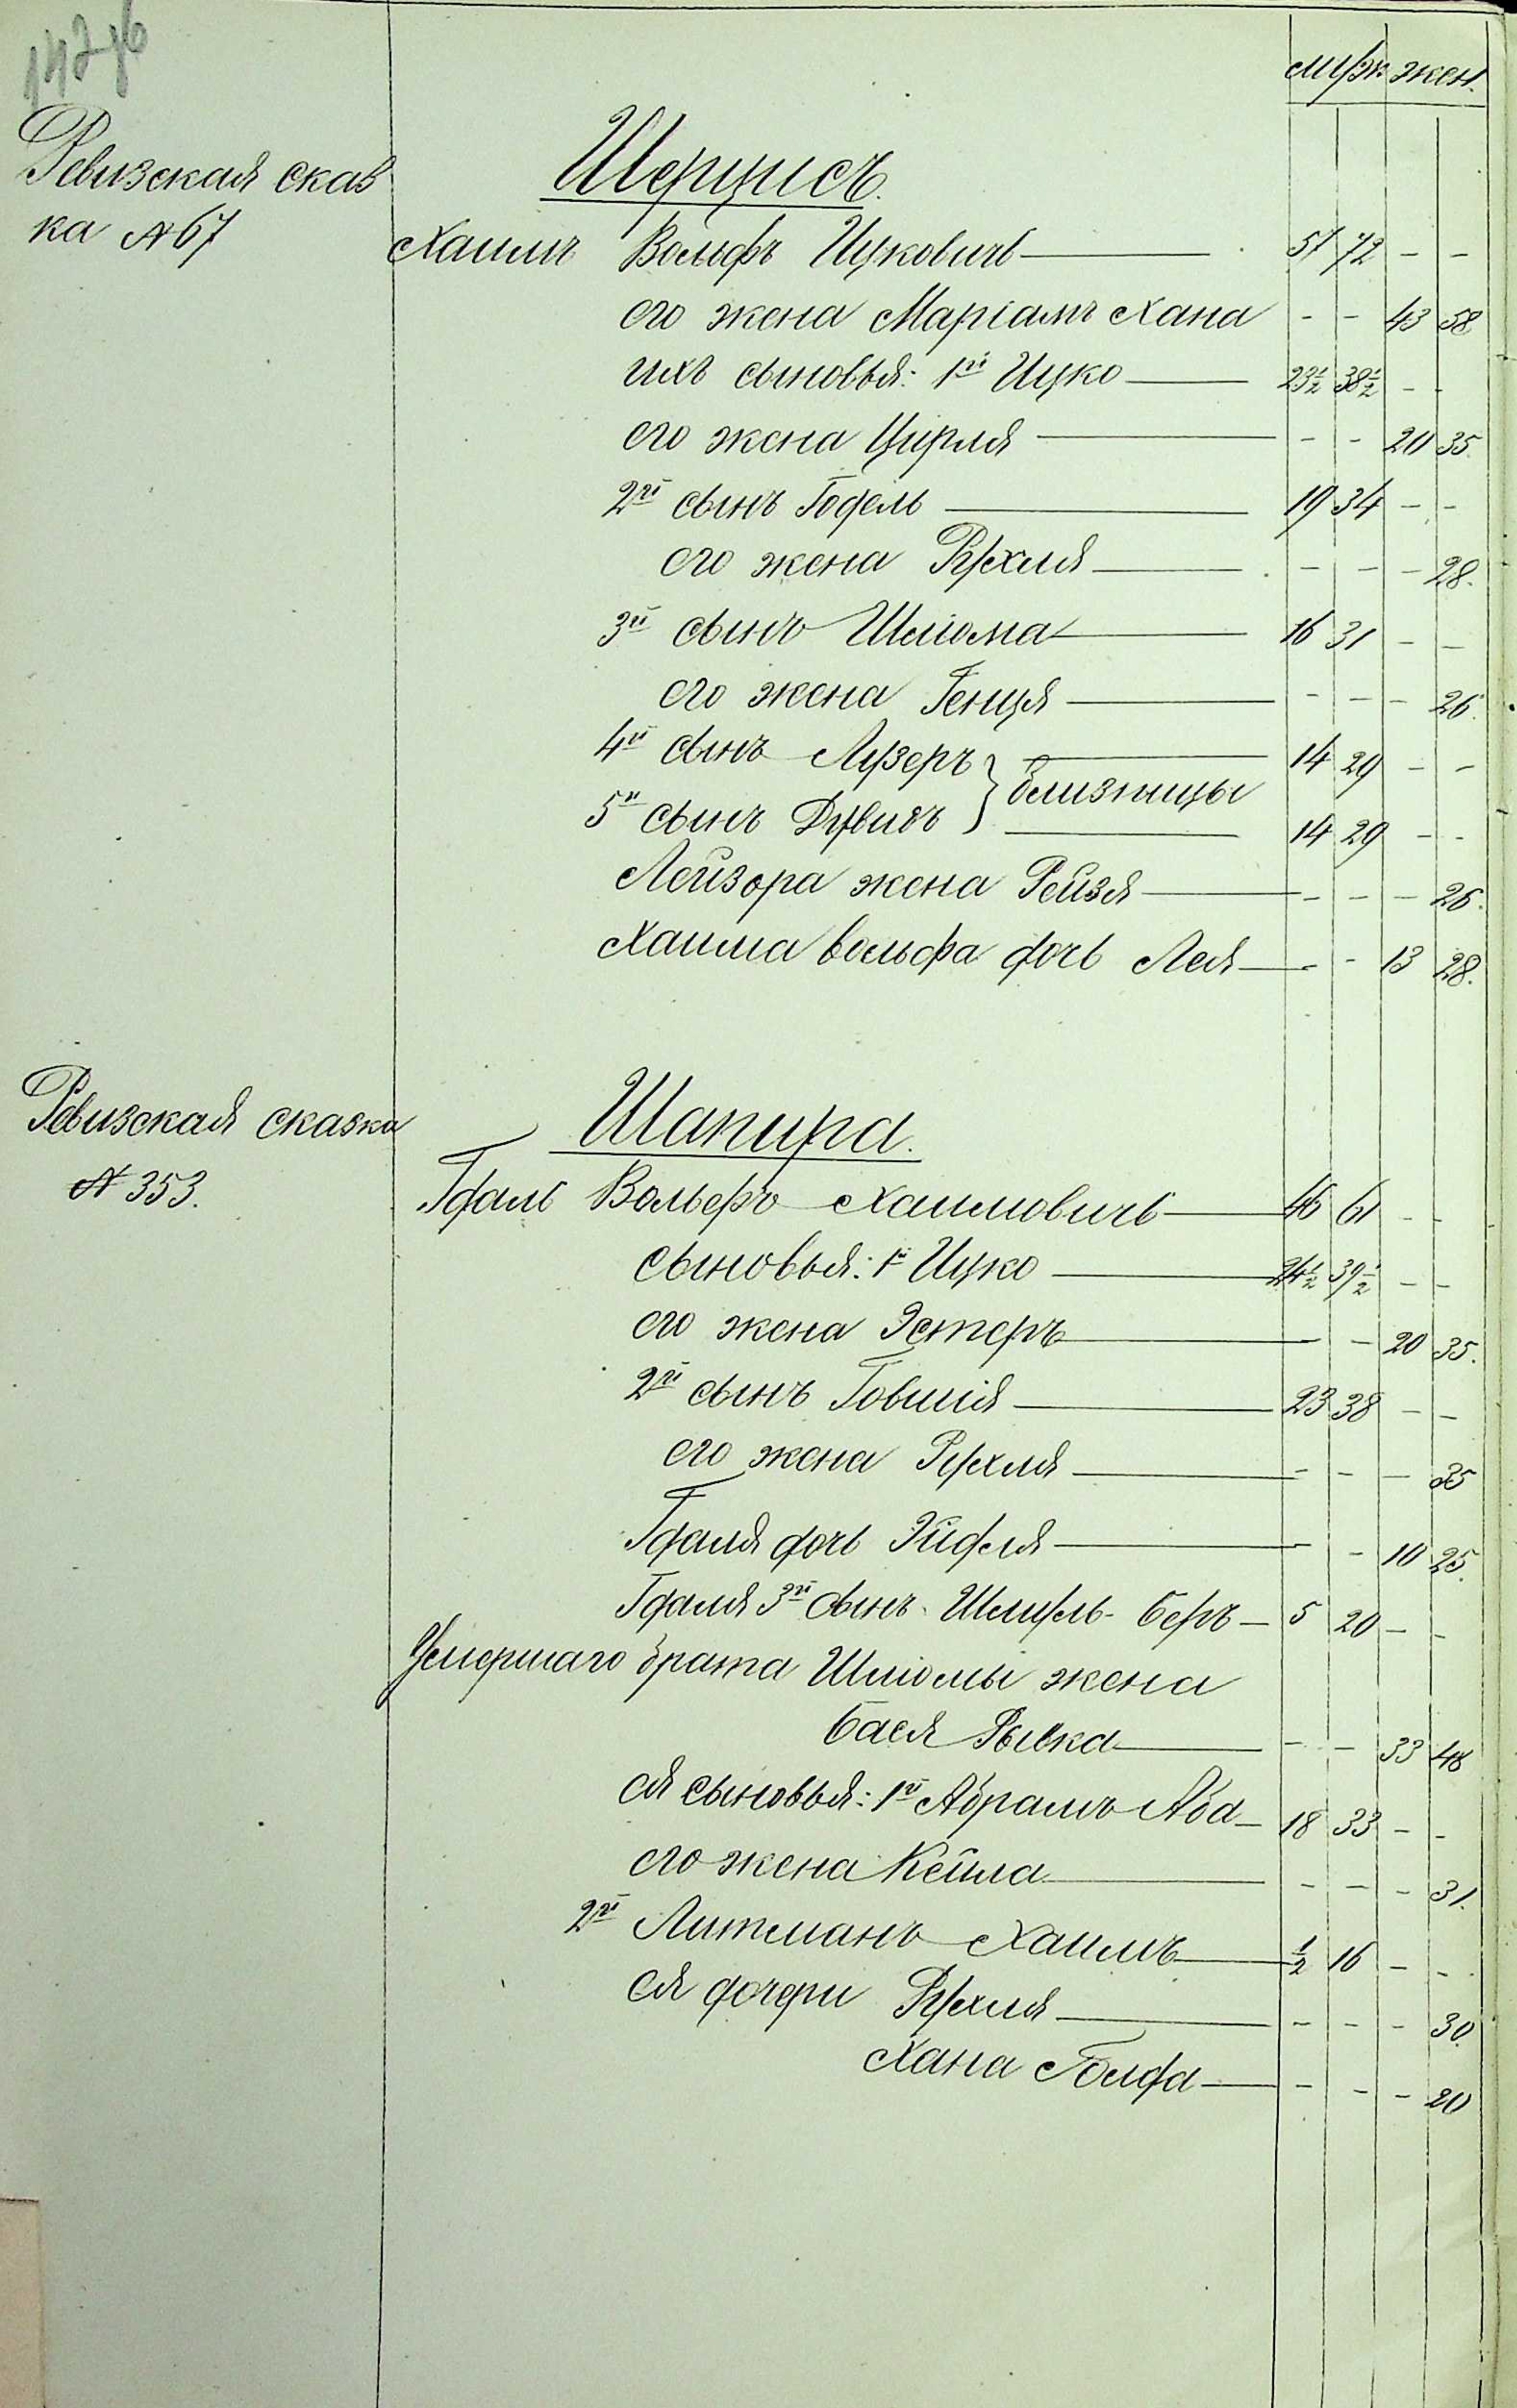 муж жен.
Ревизская сказ
ка № 67
Шерцисъ.
Хаимъ Вольфъ Ицковичъ — 51 72 - -
его жена Маріамъ Хана - - 43 58
ихъ сыновья: 1й Ицко — 23½ 38½ - -
его жена Цирля — - - 20 35
2й сынъ Годель — 19 34 - -
его жена Рухля — - - - 28.
3й сынъ Шліома — 16 31 - -
его жена Генця — - - - 26.
4й сынъ Лузеръ } близницы — 14 29 - -
5й сынъ Дувидъ — 14 29 - -
Лейзора жена Рейзя — - - - 26.
Хаима Вольфа дочь Лея — - - 13 28.
Ревизская сказка
№ 353.
Шапира.
Гдаль Вольфъ Хаимовичъ — 46 61 - -
сыновья: 1й Ицко — 24½ 39½ - -
его жена Эстеръ — - - 20 35.
2й сынъ Говшія — 23 38 - -
его жена Рухля — - - - 35
Гдаля дочь Эйдля — - - 10 25.
Гдаля 3й сынъ Шмуль-Беръ — 5 20 - -
Умершаго брата Шліомы жена
Бася Рывка — - - 33 48
ея сыновья: 1й Абрамъ Аба — 18 33 - -
его жена Кейла — - - - 31.
2й Литманъ Хаимъ — ½ 16 - -
ея дочери Рухля — - - - 30.
Хана Голда — - - - 20